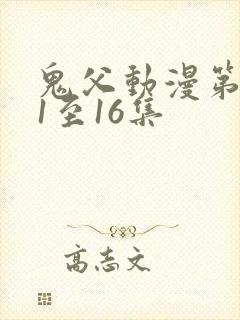 鬼父動漫第
1至16集
高志文